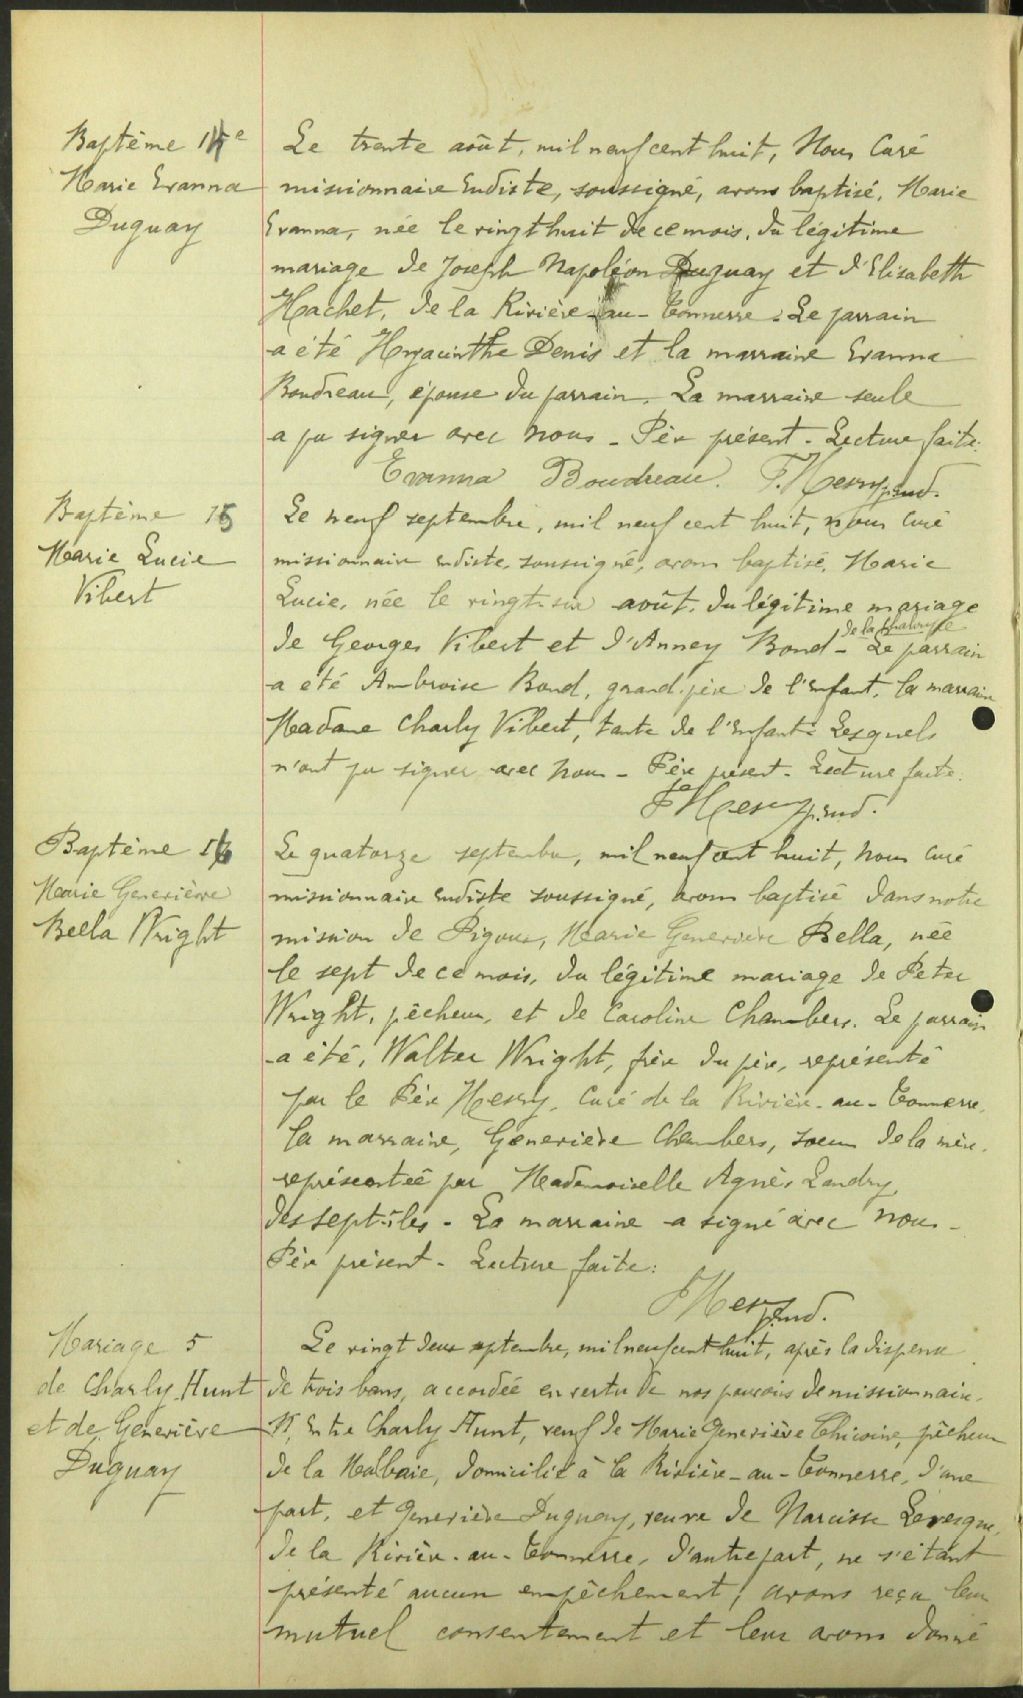 Baptême 14e
Marie Evanna
Duguay
Le trente août, mil neuf cent huit, Nous Curé
missionnaire Eudiste, soussigné, avons baptisé, Marie
Evanna, née le vingt huit de ce mois, du légitime
mariage de Joseph Napoléon Duguay et d'Elisabeth
Hachet, de la Rivière-au-Tonnerre. Le parrain
a été Hyacinthe Denis et la marraine Evanna
Boudreau, épouse du parrain. La marraine seule
a pu signer avec nous - Père présent - Lecture faite.
Evanna Boudreau. F. Hesry p. eud.
Baptême 15
Marie Lucie
Vibert
Le neuf septembre, mil neuf cent huit, nous curé
missionnaire eudiste, soussigné, avons baptisé, Marie
Lucie, née le vingt-six août, du légitime mariage
de Georges Vibert et d'Anney Bond - de la Le parrain
a été Ambroise Bond, grand-père de l'enfant, la marraine
Madame Charly Vibert, tante de l'enfant. Lesquels
n'ont pu signer avec nous - Père présent - Lecture faite.
F Hesry p. eud.
Baptême 16
Marie Geneviève
Bella Wright
Le quatorze septembre, mil neuf cent huit, Nous Curé
missionnaire eudiste soussigné, avons baptisé dans notre
mission de Pigoux, Marie Geneviève Bella, née
le sept de ce mois, du légitime mariage de Peter
Wright, pêcheur, et de Caroline Chambers. Le parrain
a été, Walter Wright, frère du père, représenté
par le Père Hesry, Curé de la Rivière-au-Tonnerre,
la marraine, Geneviève Chambers, soeur de la mère,
représentée par Mademoiselle Agnès Landry,
des sept-îles - La marraine a signé avec nous -
Père présent - Lecture faite:
F Hesry p. eud.
Mariage 5
de Charly Hunt
et de Geneviève
Duguay
Le vingt deux septembre, mil neuf cent huit, après la dispense
de trois bans, accordée en vertu de nos pouvoirs de missionnaire,
Entre Charly Hunt, veuf de Marie Geneviève Chicoine, pêcheur
de la Malbaie, domicilié à la Rivière-au-Tonnerre, d'une
part, et Geneviève Duguay, veuve de Narcisse Levesque,
de la Rivière-au-Tonnerre, d'autre part, ne s'étant
présenté aucun empêchement, avons reçu leur
mutuel consentement et leur avons donné